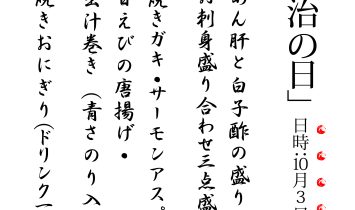 治の日」
日時:10月3
ん肝と白子酢の盛り
刺身盛り合わせ三点盛
焼きガキ・サーモンアス
甘えびの唐揚げ・
出汁巻き(青さのり入
焼きおにぎり(ドリンク